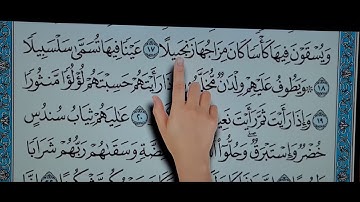 وَيُسْقَوْنَ فِيهَا كَأْسًا كَانَ مِزَاجُهَا زَنجَبِيلًا ١٧ عَيْنًا فِيهَا تُسَمَّىٰ سَلْسَبِيلًا
١٨ وَيَطُوفُ عَلَيْهِمْ وِلْدَٰنٌ مُّخَلَّدُونَ إِذَا رَأَيْتَهُمْ حَسِبْتَهُمْ لُؤْلُؤًا مَّنثُورًا
١٩ وَإِذَا رَأَيْتَ ثَمَّ رَأَيْتَ ٢٠ عَٰلِيَهُمْ ثِيَابُ سُندُسٍ
خُضْرٌ وَإِسْتَبْرَقٌ وَحُلُّوٓا۟ فِضَّةٍ وَسَقَىٰهُمْ رَبُّهُمْ شَرَابًا